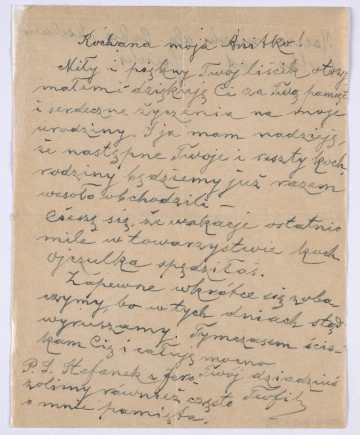 Kochana moja Anitko!
Miły i piękny Twój liścik otrzy
małem i dziękuję Ci za Twą pamięć
i serdeczne życzenia na moje
urodziny. I ja mam nadzieję,
że następne Twoje i reszty koch.
rodziny będziemy już razem
wesoło obchodzili
Cieszę się, że wakacje ostatnio
mile w towarzystwie koch.
ojczulka spędziłaś.
Zapewne wkrótce się zoba
czymy, bo w tych dniach stąd
wyruszamy. Tymczasem ścis-
kam Cię i całuję mocno
Twój dziaduś
Teofil
P. S. Stefanek z
żoli my również często
o mnie pamięta.